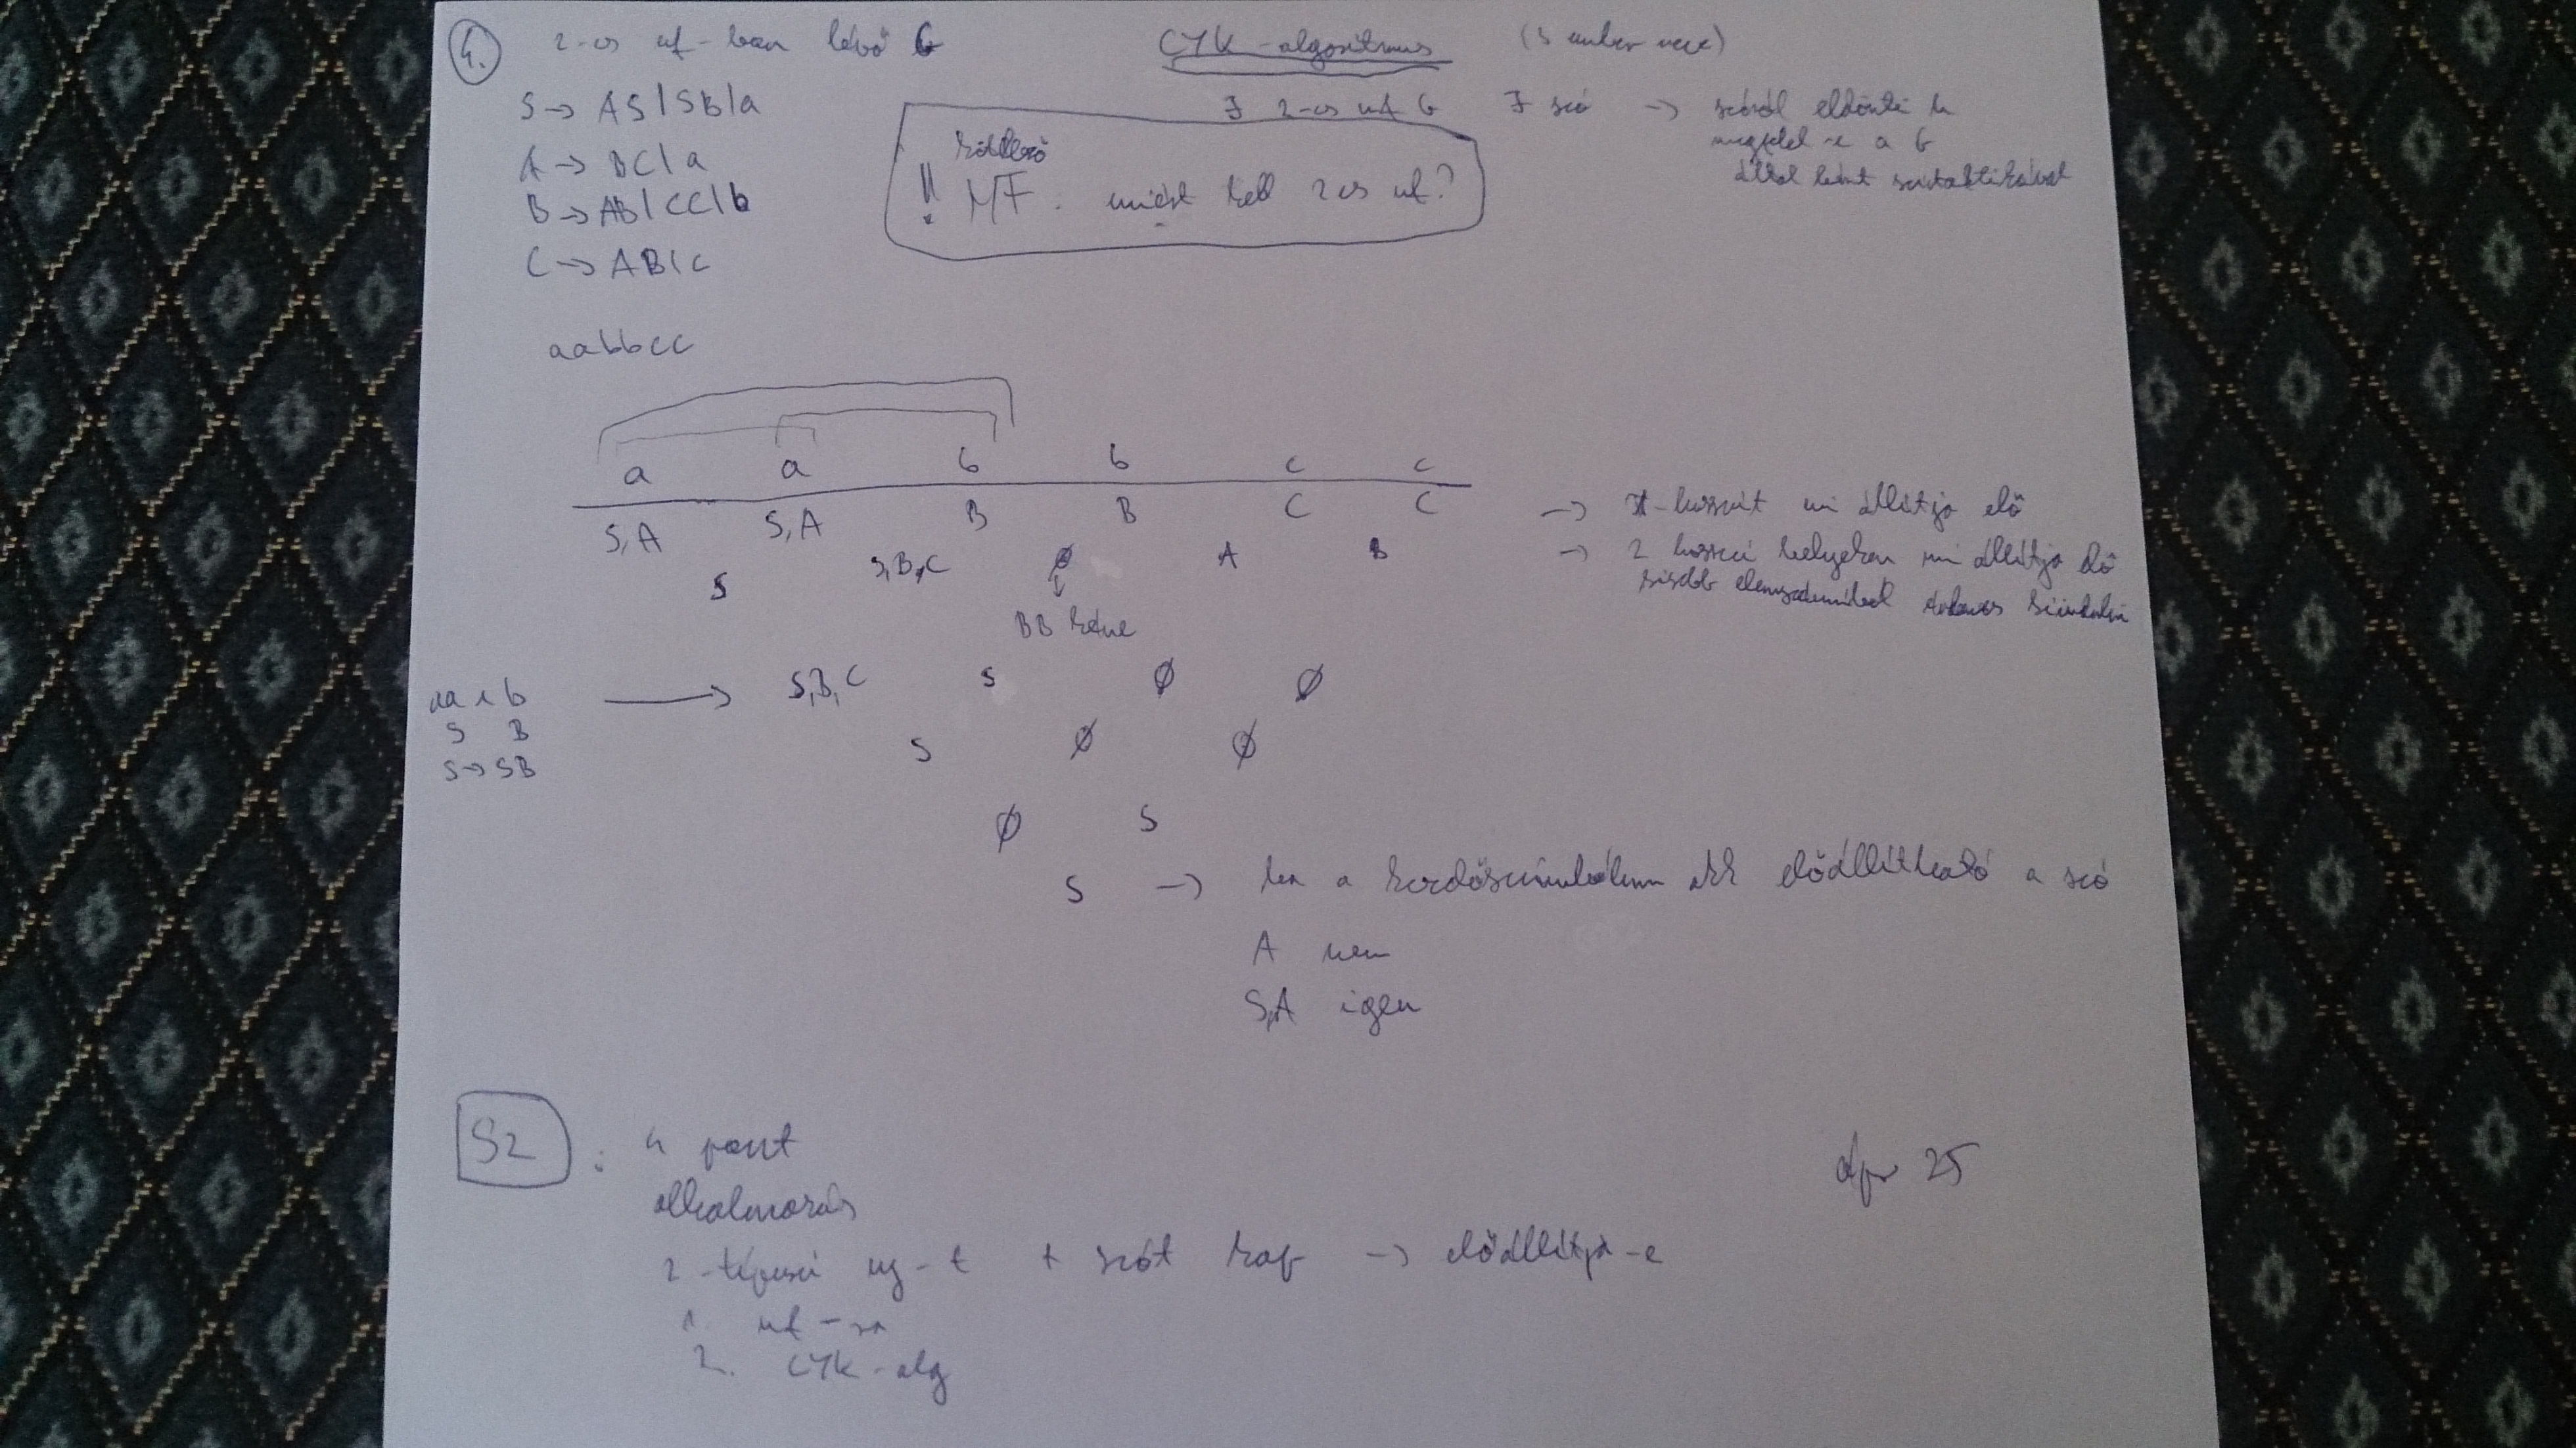 4. 2-es nf-ban lévő G
CYK-algoritmus (3 ember neve)
S → AS|SB|a
A → BC|a
B → AB|CC|b
C → AB|c
I 2-es nf G I szó → szóról eldönti h
megfelel-e a G
által leírt szintaktikának
kötelező
!! HF. miért kell 2es nf?
aabbcc
a a b b c c
S,A S,A B B C C → 1-hosszút mi állítja elő
S S,B,C ∅ A B → 2 hosszú helyeken mi állítja elő
↓
BB kéne
aa + b → S,B,C S ∅ ∅
S B
S → SB
S ∅ ∅
∅ S
S → ha a kezdőszimbólum akk előállítható a szó
A nem
S,A igen
SZ : 4 pont
Apr 25
alkalmazás
2-típusú ny-t + szót kap → előállítja-e
1. nf-ra
2. CYK-alg